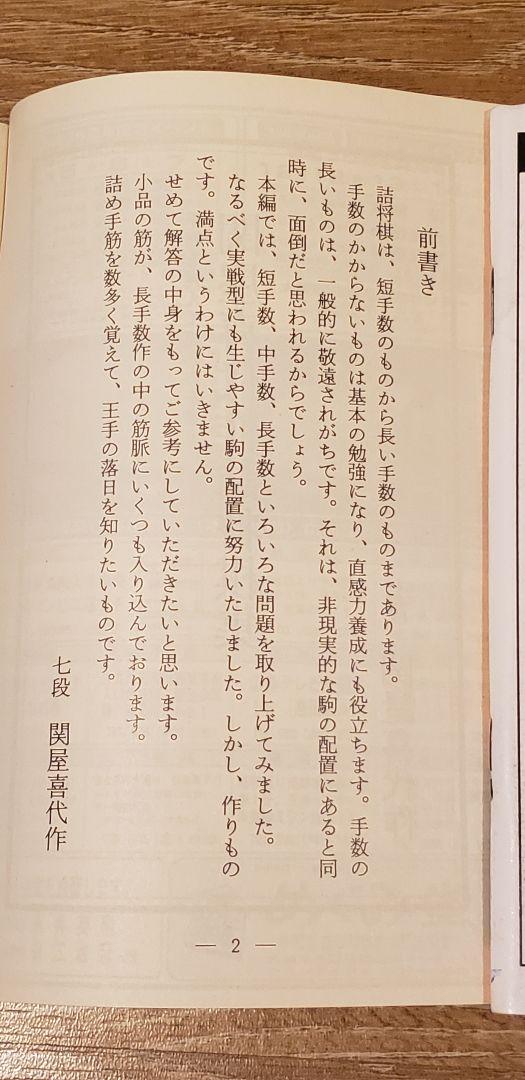 前書き
詰将棋は、短手数のものから長い手数のものまであります。
手数のかからないものは基本の勉強になり、直感力養成にも役立ちます。手数の
長いものは、一般的に敬遠されがちです。それは、非現実的な駒の配置にあると同
時に、面倒だと思われるからでしょう。
本編では、短手数、中手数、長手数といろいろな問題を取り上げてみました。
なるべく実戦型にも生じやすい駒の配置に努力いたしました。しかし、作りもの
です。満点というわけにはいきません。
せめて解答の中身をもってご参考にしていただきたいと思います。
小品の筋が、長手数作の中の筋脈にいくつも入り込んでおります。
詰め手筋を数多く覚えて、王手の落日を知りたいものです。
七段 関屋喜代作
— 2 —